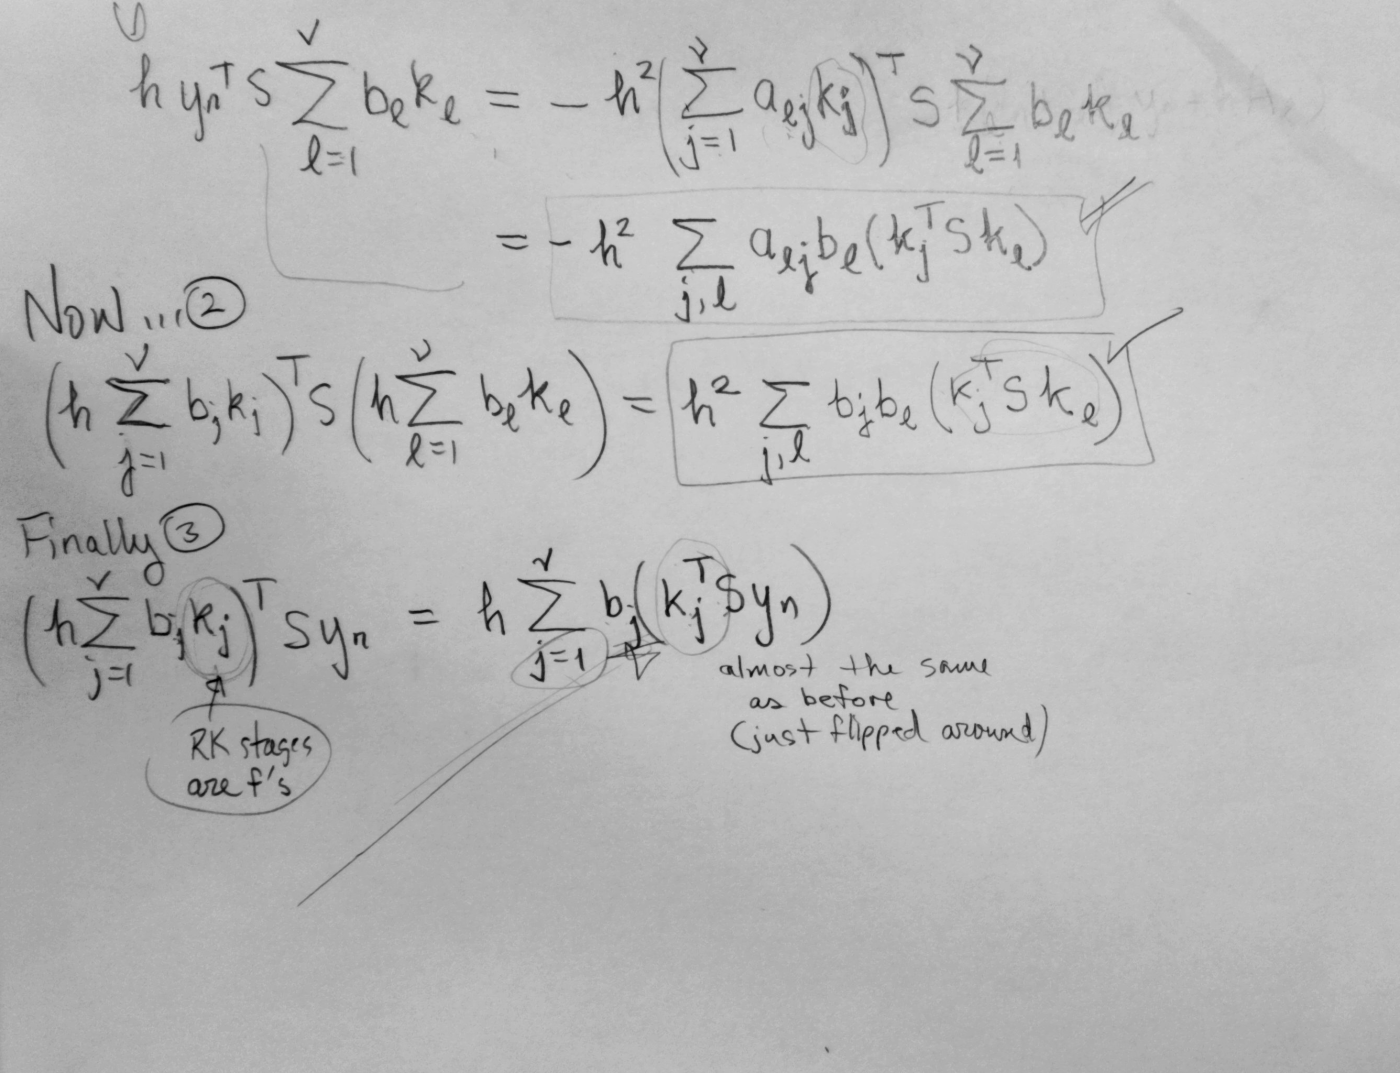 ①
h yₙᵀ S ∑_{ℓ=1}^{ν} b_ℓ k_ℓ = − h² (∑_{j=1}^{ν} a_{ℓj} k_j)ᵀ S ∑_{ℓ=1}^{ν} b_ℓ k_ℓ
= − h² ∑_{j,ℓ} a_{ℓj} b_ℓ (k_jᵀ S k_ℓ)
Now... ②
(h ∑_{j=1}^{ν} b_j k_j)ᵀ S (h ∑_{ℓ=1}^{ν} b_ℓ k_ℓ) = h² ∑_{j,ℓ} b_j b_ℓ (k_jᵀ S k_ℓ)
Finally ③
(h ∑_{j=1}^{ν} b_j k_j)ᵀ S yₙ = h ∑_{j=1}^{ν} b_j (k_jᵀ S yₙ)
almost the same
as before
(just flipped around)
RK stages
are f's